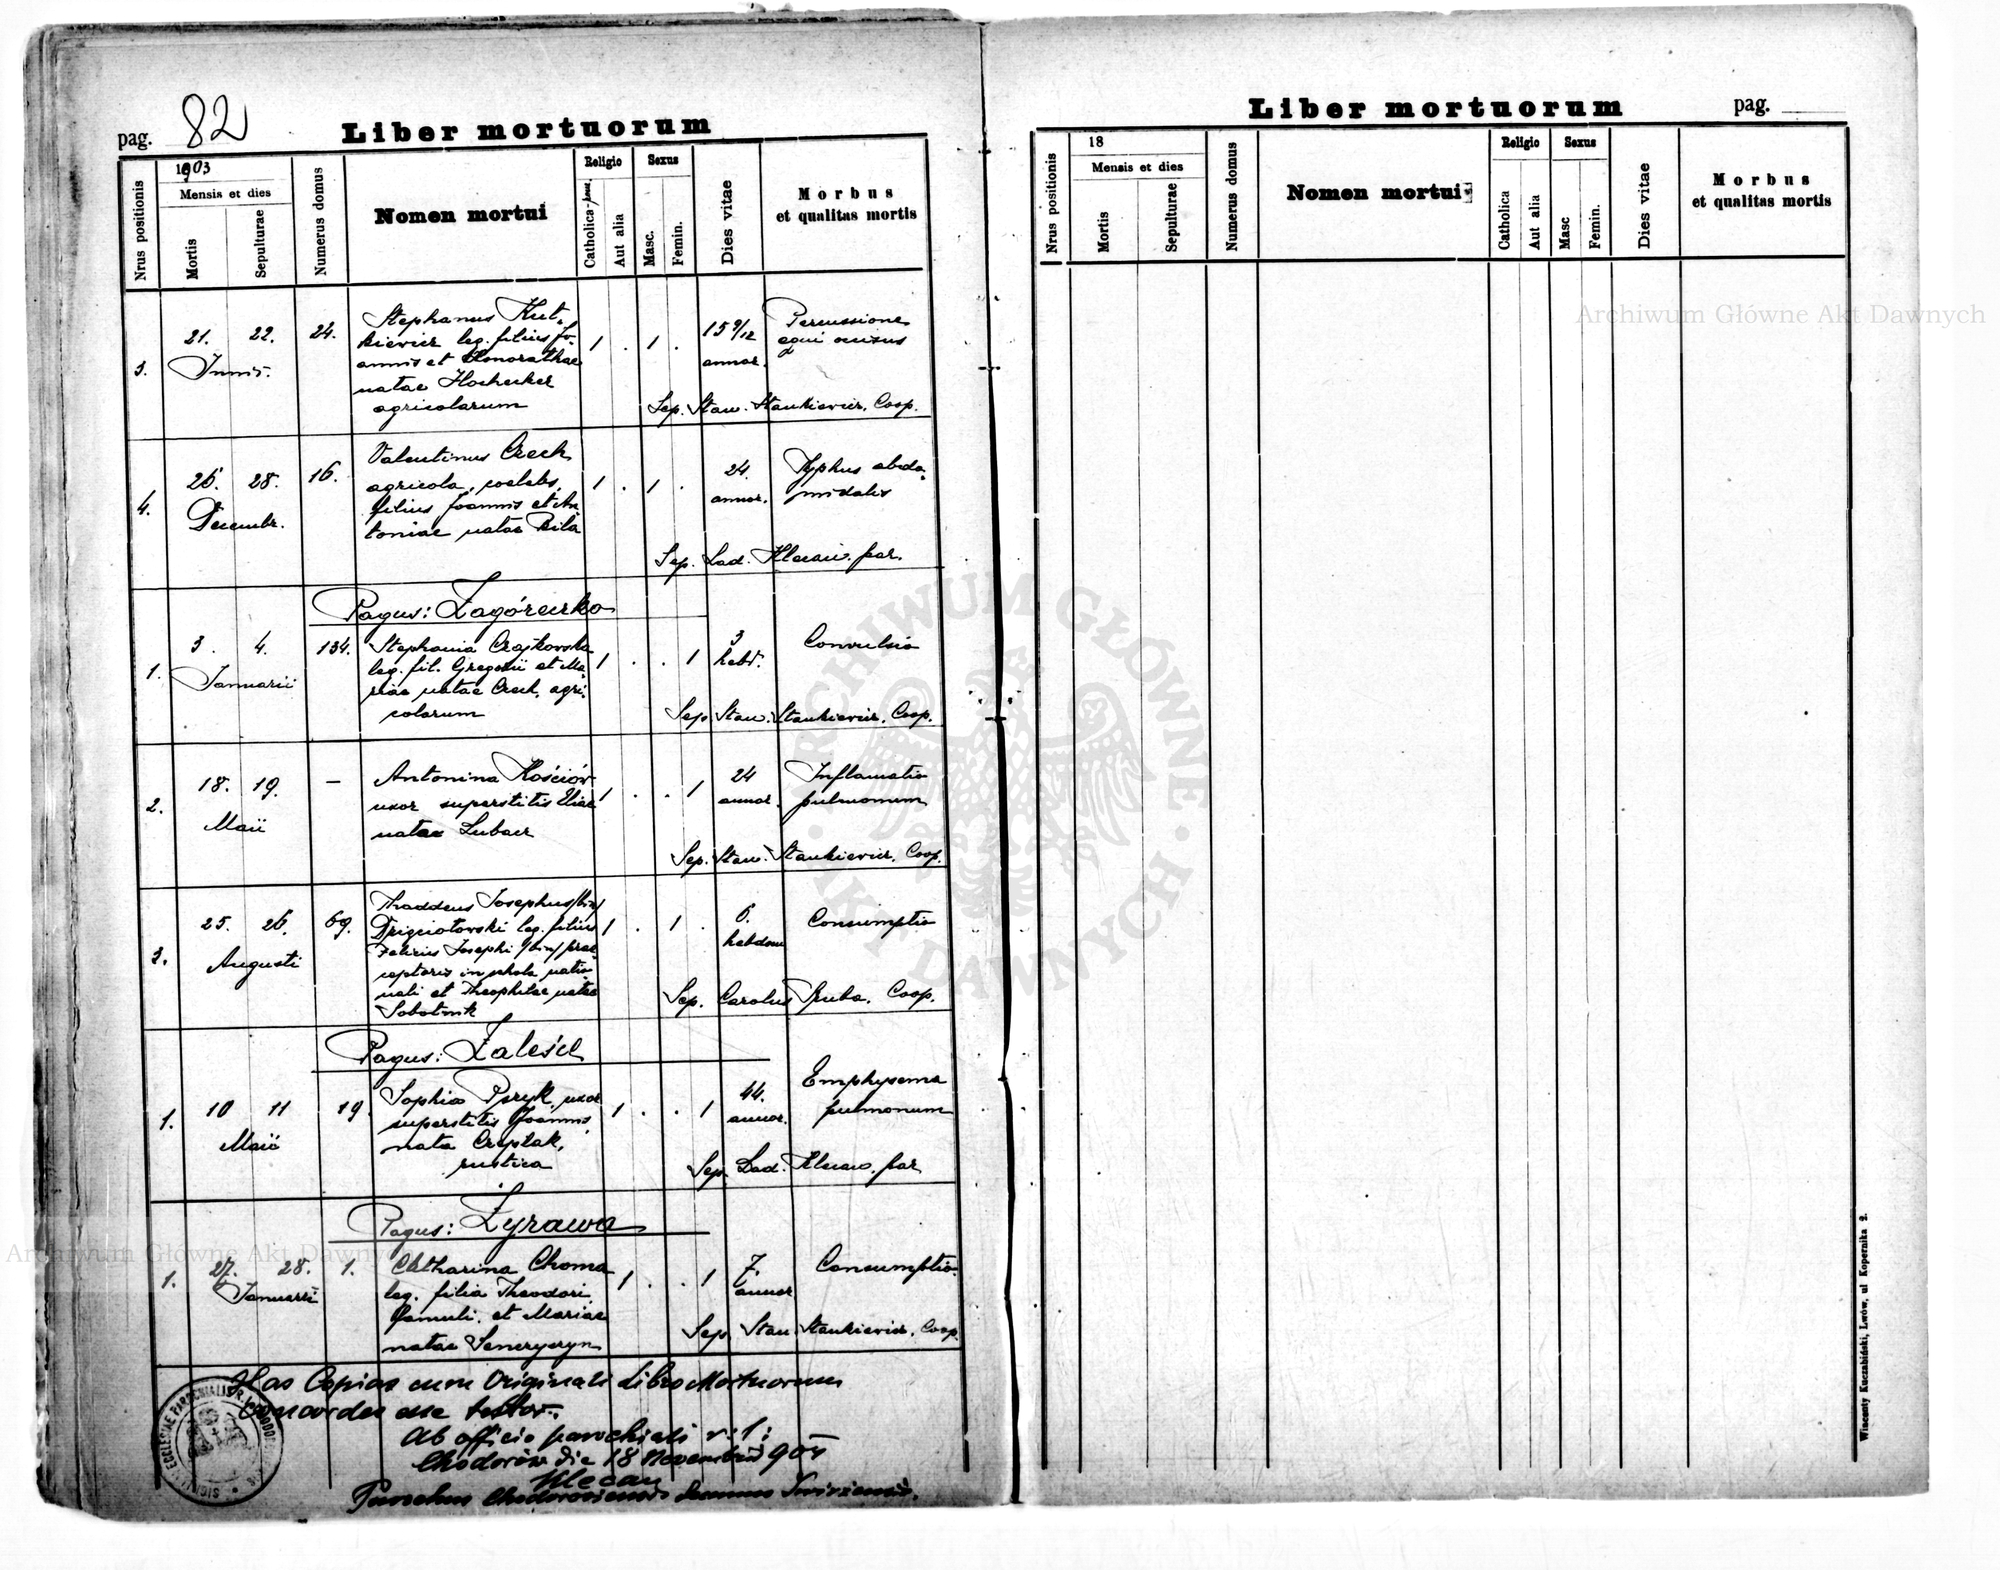 pag. 82
Liber mortuorum
1903
Mensis et dies
Nrus positionis
Mortis
Sepulturae
Numerus domus
Nomen mortui
Religio
Catholica
Aut alia
Sexus
Masc.
Femin.
Dies vitae
Morbus
et qualitas mortis
3. 21. 22. Junii. 24.
Stephanus Kut-
kievicz leg. filius Jo-
annis et Honorathae
natae Hochecker
agricolarum
1 . 1 .
15 9/12
annor.
Percussione
equi occisus
Sep. Stan. Stankievicz, Coop.
4. 26. 28. Decembr. 16.
Valentinus Czech
agricola, coelebs,
filius Joannis et An-
toniae natae Bila
1 . 1 .
24
annor.
Typhus abdo-
midalis
Sep. Lad. Klecan. par.
Pagus: Zagóreczko
1. 3. 4. Januarii 134.
Stephania Czajkovska
leg. fil. Gregorii et Ma-
riae natae Czech, agri-
colarum
1 . . 1
3
hebd.
Convulsio
Sep. Stan. Stankievicz, Coop.
2. 18. 19. Maii –
Antonina Kościów
uxor superstitis Eliae
natae Lubacz
1 . . 1
24
annor.
Inflamatio
pulmonum
Sep. Stan. Stankievicz, Coop.
3. 25. 26. Augusti 69.
Thaddeus Josephus /bin/
leg. filius
Josephi /bin/ prae-
ceptoris in schola natio-
nali et Theophilae natae
Sobotnik
1 . 1 .
6.
hebdom
Consumptio
Sep. Carolus Kuba, Coop.
Pagus: Zaleśce
1. 10 11 Maii 19.
Sophia Pszyk, uxor
superstitis Joannis,
nata Czeplak,
rustica
1 . . 1
44.
annor.
Emphysema
pulmonum
Sep. Lad. Klecan. par.
Pagus: Żyrawa
1. 27. 28. Januarii 1.
Catharina Choma
leg. filia Theodori
famuli, et Mariae
natae
1 . . 1
7.
annor
Consumptio.
Sep. Stan. Stankievicz, Coop.
Has Copias cum Originali Libro Mortuorum
concordes esse testor.
Ab officio parochiali r: l:
Chodorów die 18 Novembris 904
Klecan
Parochus Chodoroviensis
Liber mortuorum
pag.
18
Mensis et dies
Nrus positionis
Mortis
Sepulturae
Numerus domus
Nomen mortui
Religio
Catholica
Aut alia
Sexus
Masc
Femin.
Dies vitae
Morbus
et qualitas mortis
Wincenty Kuczabiński, Lwów, ul Kopernika 2.
Archiwum Główne Akt Dawnych
Archiwum Główne Akt Dawnych
ARCHIWUM GŁÓWNE AKT DAWNYCH